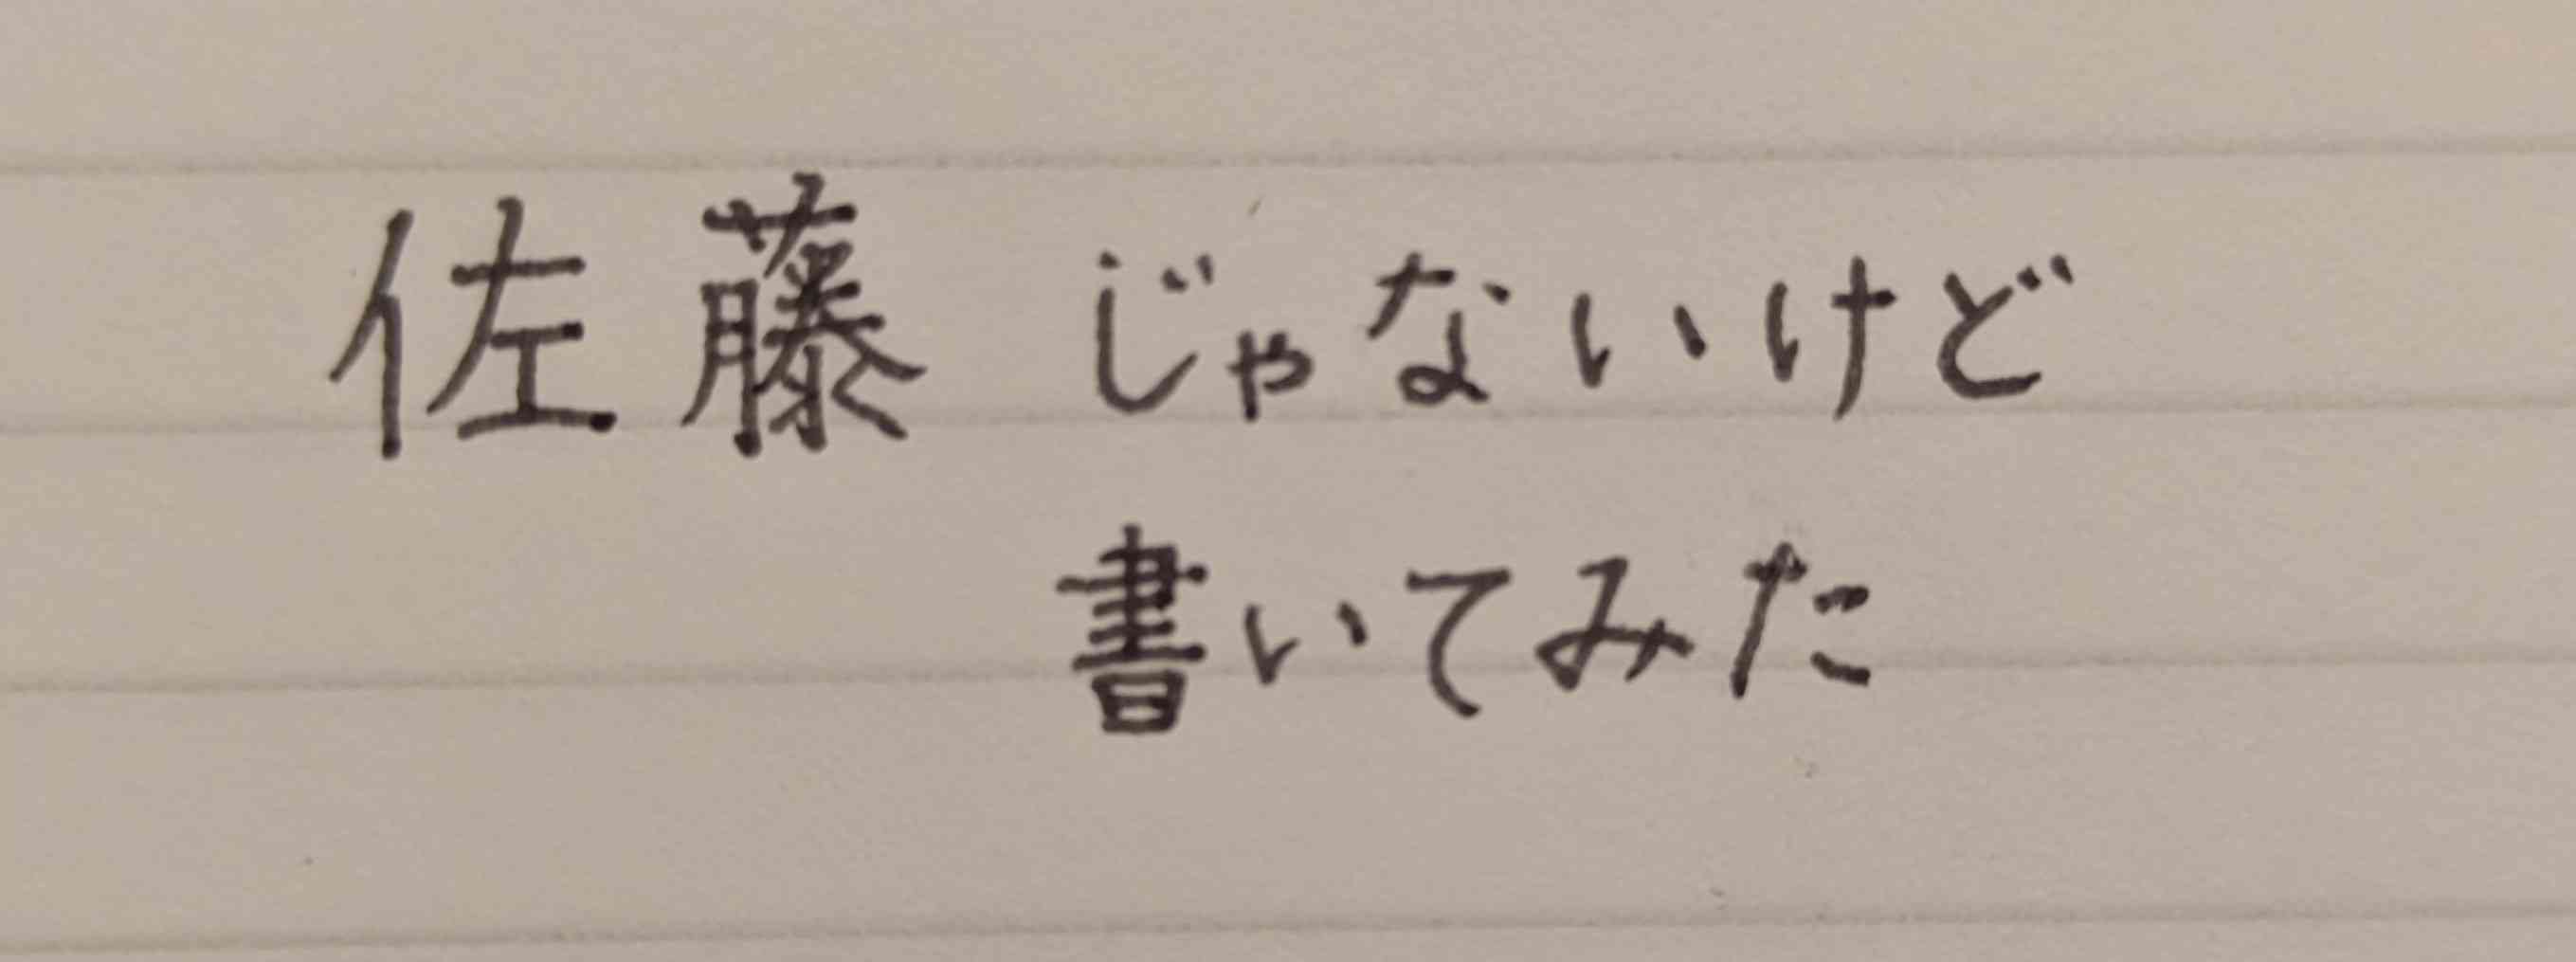 佐藤 じゃないけど
書いてみた